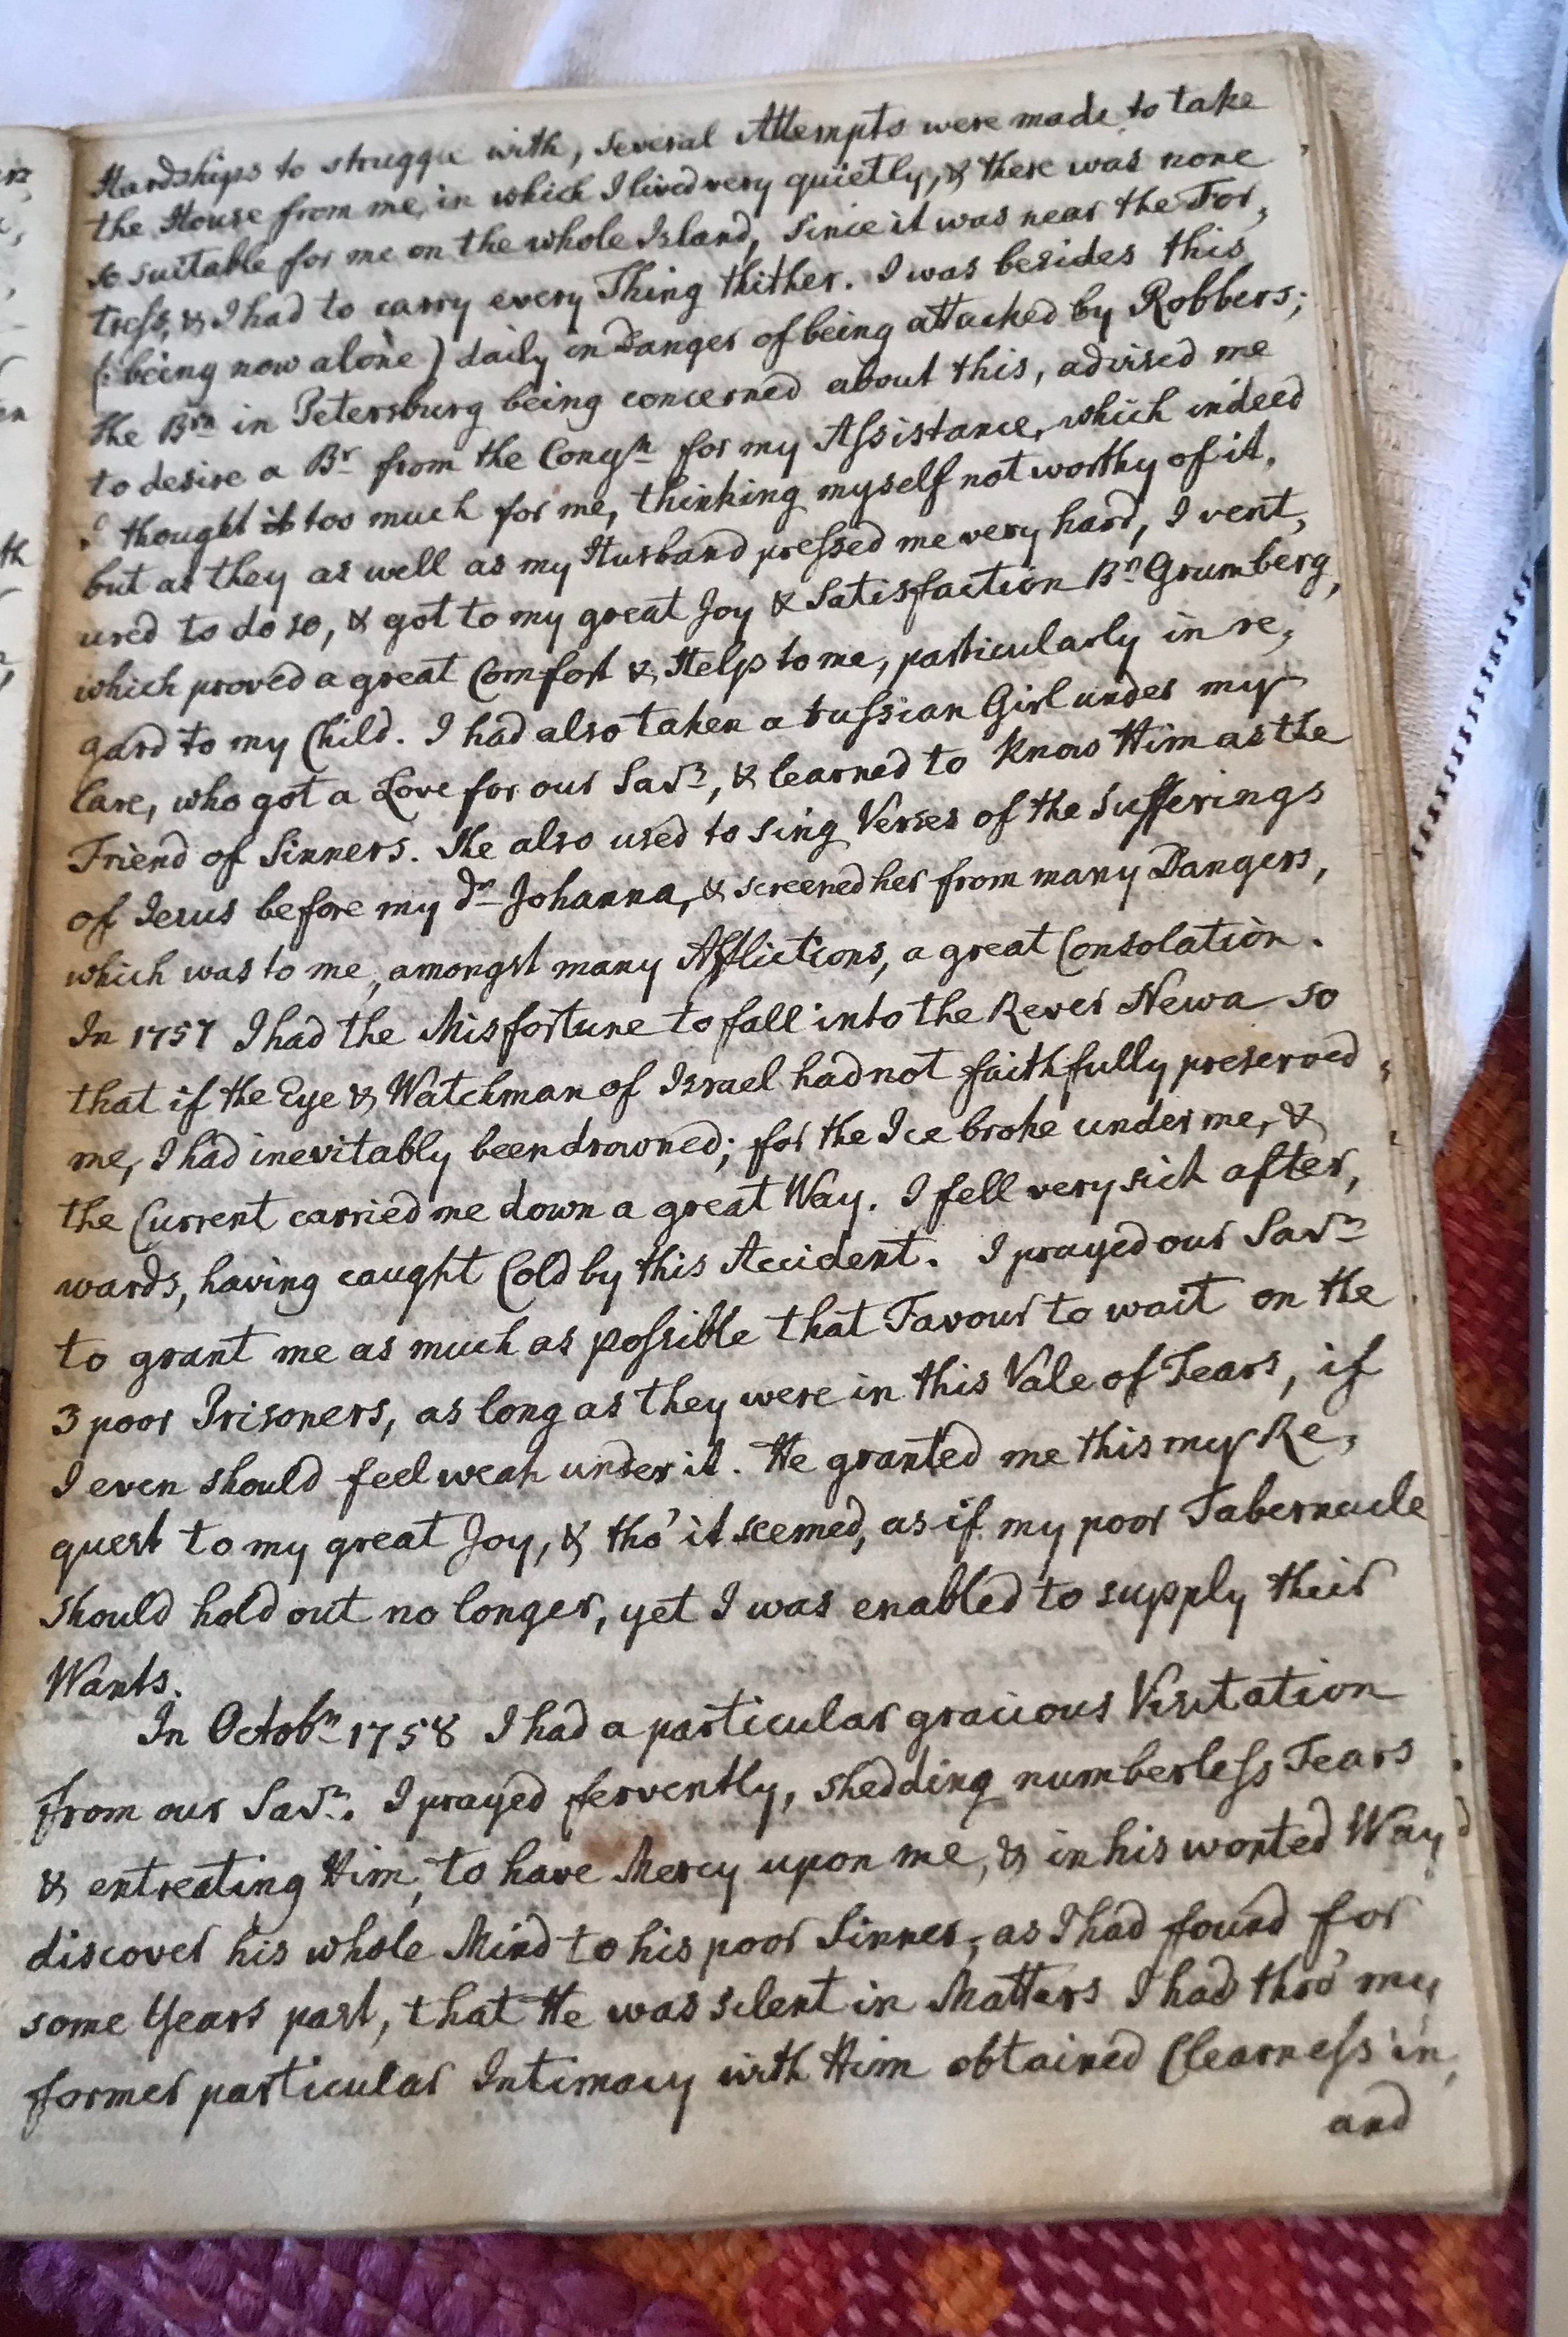 Hardships to struggle with, several Attempts were made to take
the House from me, in which I lived very quietly, & there was none
so suitable for me on the whole Island, since it was near the For,
tress, & I had to carry every Thing thither. I was besides this
(: being now alone) daily in Danger of being attacked by Robbers;
the Brn in Petersburg being concerned about this, advised me
to desire a Br from the Congn for my Assistance, which indeed
I thought too much for me, thinking myself not worthy of it,
but as they as well as my Husband pressed me very hard, I vent,
ured to do so, & got to my great Joy & Satisfaction Brn Grumberg,
which proved a great Comfort & Help to me, particularly in re,
gard to my Child. I had also taken a russian Girl under my
Care, who got a Love for our Savr, & learned to know Him as the
Friend of Sinners. She also used to sing Verses of the Sufferings
of Jesus before my dr Johanna, & screened her from many Dangers,
which was to me, amongst many Afflictions, a great Consolation.
In 1757 I had the Misfortune to fall into the River Newa so
that if the Eye & Watchman of Israel had not faithfully preserved
me, I had inevitably been drowned; for the Ice broke under me, &
the Current carried me down a great Way. I fell very sick after,
wards, having caught Cold by this Accident. I prayed our Savr
to grant me as much as possible that Favour to wait on the
3 poor Prisoners, as long as they were in this Vale of Tears, if
I even should feel weak under it. He granted me this my Re,
quest to my great Joy, & tho' it seemed, as if my poor Tabernacle
should hold out no longer, yet I was enabled to supply their
Wants.
In Octobr 1758 I had a particular gracious Visitation
from our Savr. I prayed fervently, shedding numberless Tears
& entreating Him, to have Mercy upon me, & in his wonted Way
discover his whole Mind to his poor Sinner, as I had found for
some Years past, that He was silent in Matters I had thro' my
former particular Intimacy with Him obtained Clearness in,
and